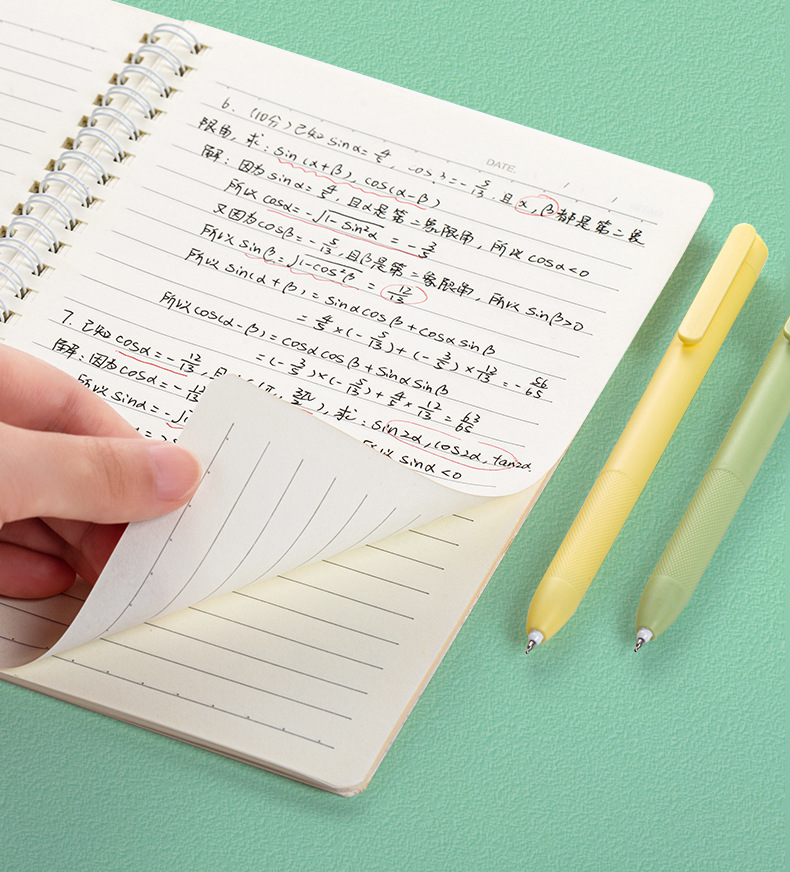 DATE.
6. (10分)已知 sinα=4/5, cosβ=-5/13, 且α,β都是第二象
限角, 求: sin(α+β), cos(α-β)
解: 因为 sinα=4/5, 且α是第二象限角, 所以 cosα<0
所以 cosα=-√1-sin²α = -3/5
又因为 cosβ=-5/13, 且β是第二象限角, 所以 sinβ>0
所以 sinβ=√1-cos²β = 12/13
所以 sin(α+β) = sinαcosβ+cosαsinβ
= 4/5×(-5/13)+(-3/5)×12/13=-56/65
所以 cos(α-β)= cosαcosβ+sinαsinβ
=(-3/5)×(-5/13)+4/5×12/13=63/65
7. 已知 cosα=-12/13, 且 (π, 3π/2), 求: sin2α, cos2α, tan2α.
解: 因为 cosα=-12/13 所以 sinα<0
所以 sinα=-√1